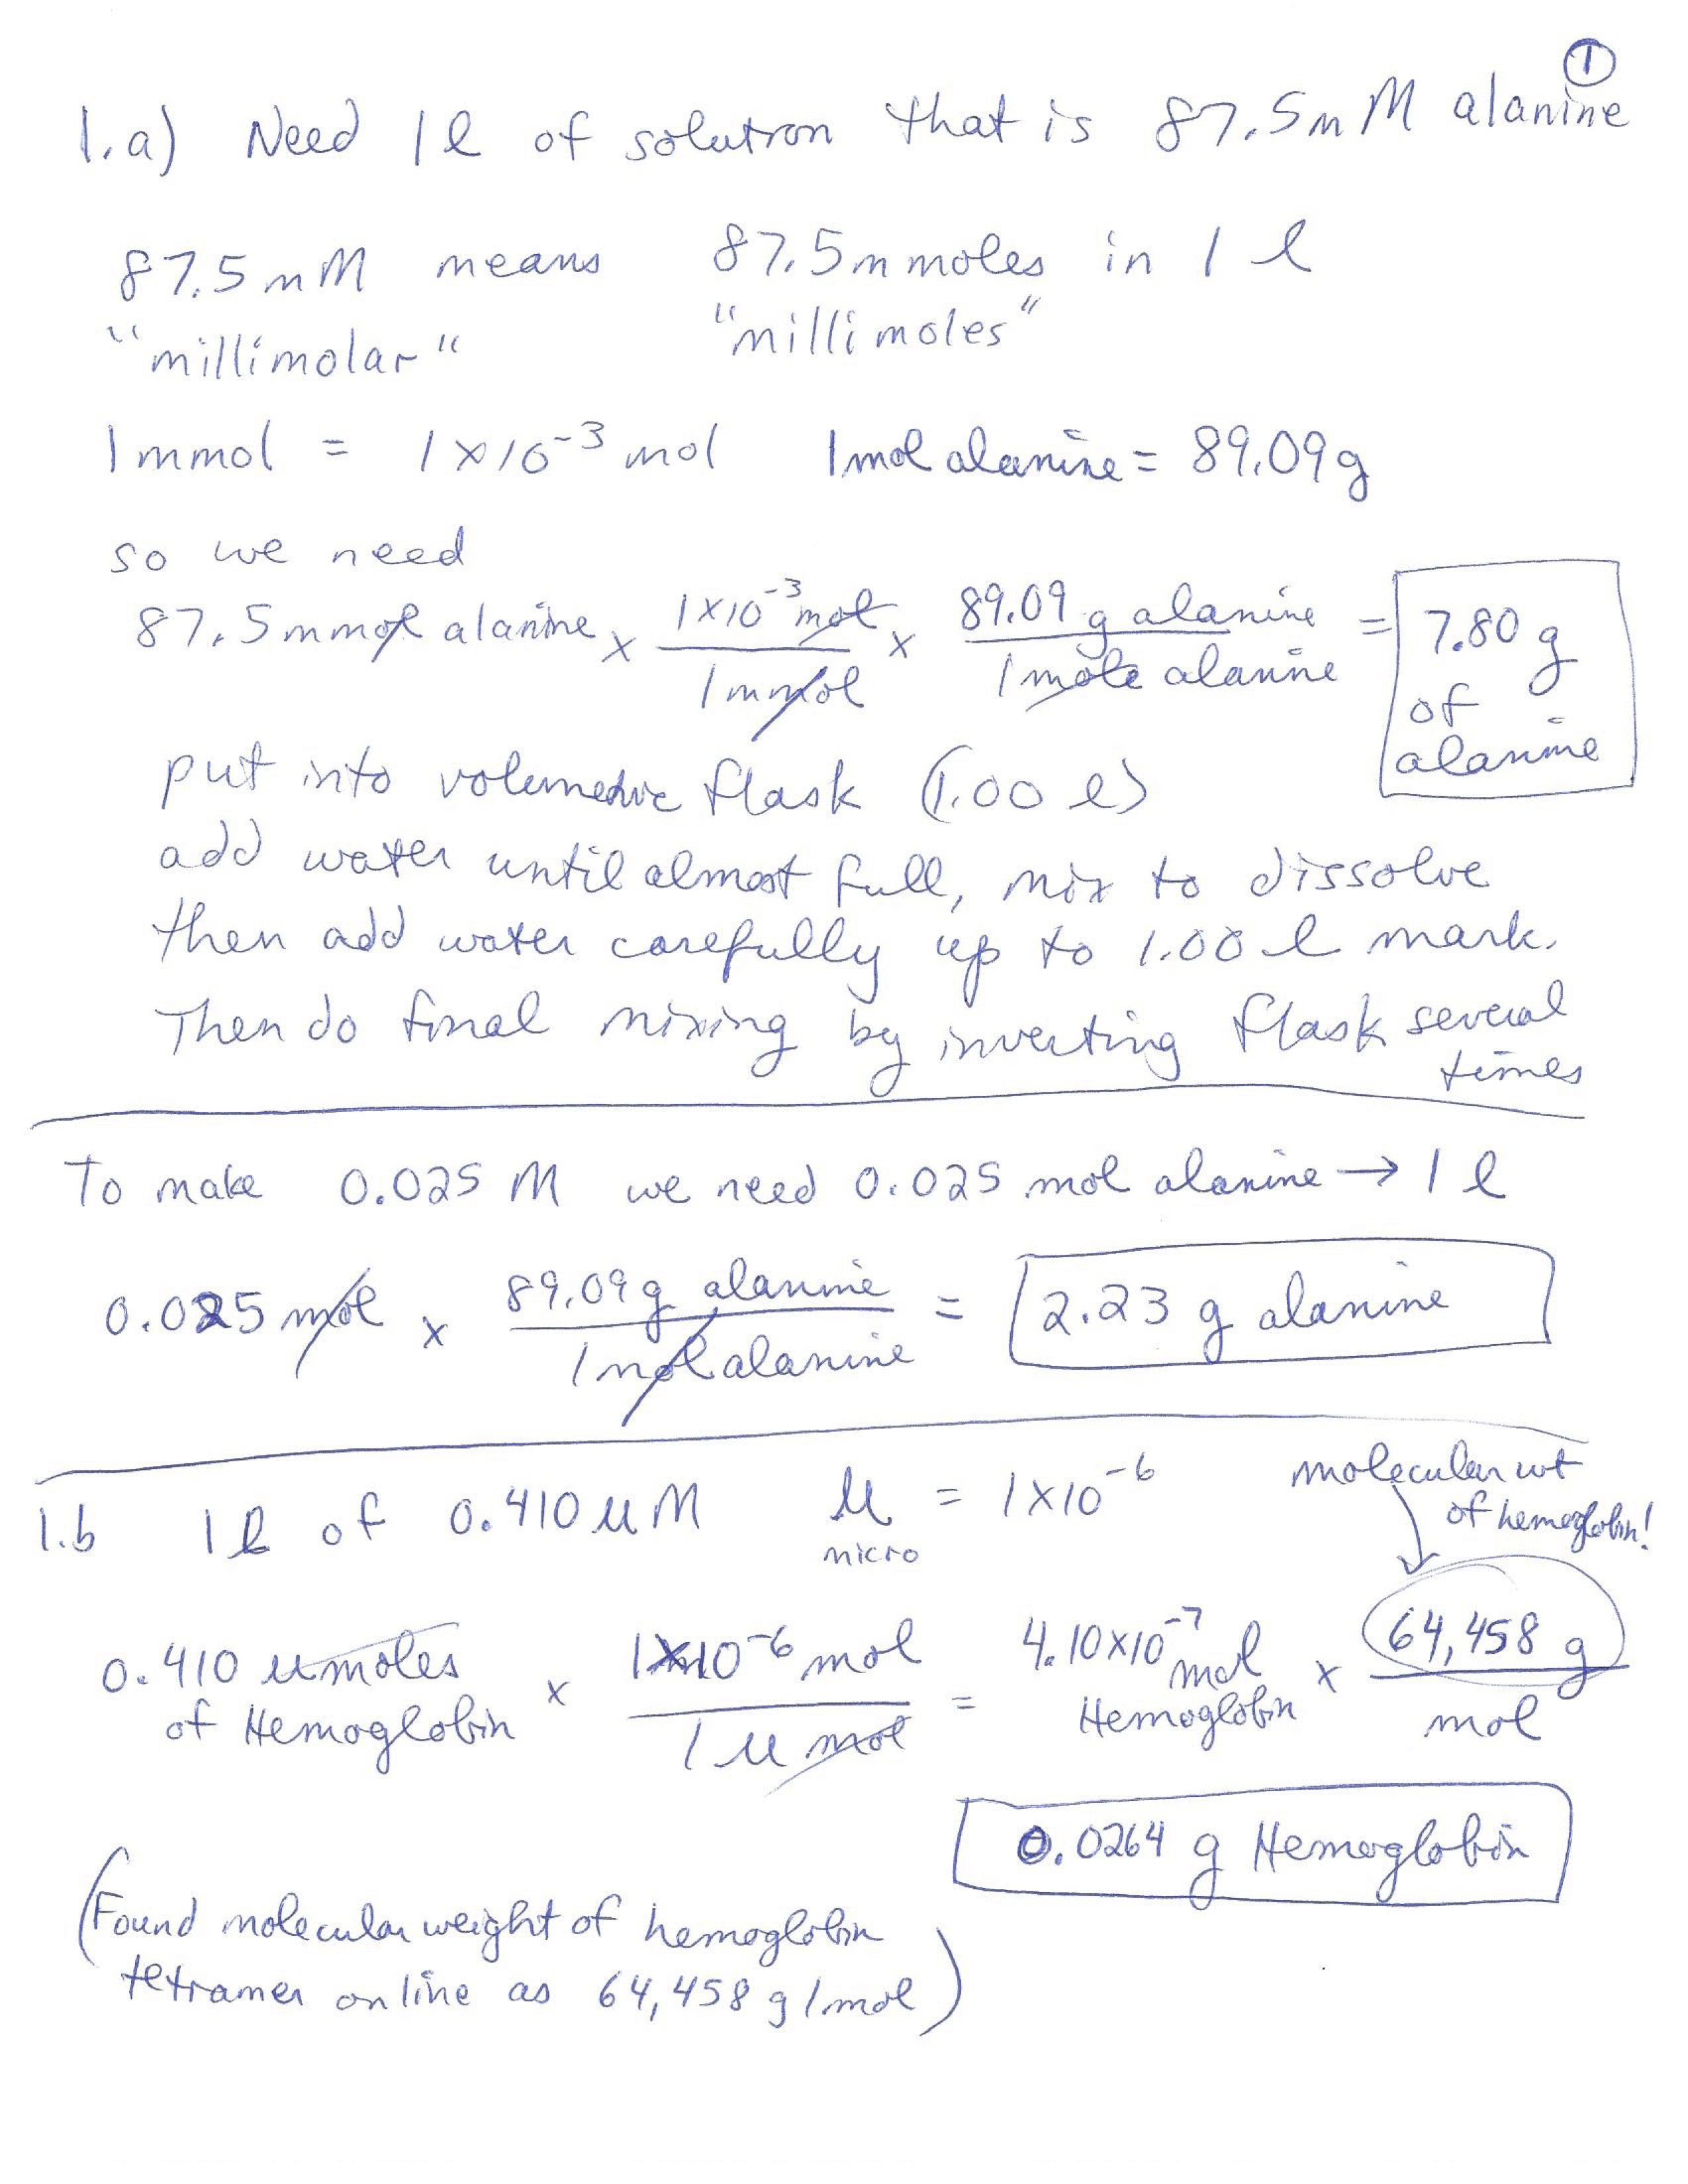 ①
1.a) Need 1 l of solution that is 87.5 mM alanine
87.5 mM means 87.5 m moles in 1 l
"millimolar" "millimoles"
1 mmol = 1 x 10⁻³ mol 1 mol alanine = 89.09 g
so we need
87.5 mmol alanine x 1 x 10⁻³ mol / 1 mmol x 89.09 g alanine / 1 mole alanine = 7.80 g of alanine
put into volumetric flask (1.00 l)
add water until almost full, mix to dissolve
then add water carefully up to 1.00 l mark.
Then do final mixing by inverting flask several
times
To make 0.025 M we need 0.025 mol alanine → 1 l
0.025 mol x 89.09 g alanine / 1 mol alanine = 2.23 g alanine
1.b 1 l of 0.410 μM μ = 1 x 10⁻⁶ molecular wt
micro of hemoglobin!
0.410 μmoles of Hemoglobin x 1x10⁻⁶ mol / 1 μ mol = 4.10 x 10⁻⁷ mol Hemoglobin x 64,458 g / mol
0.0264 g Hemoglobin
(Found molecular weight of hemoglobin
tetramer online as 64,458 g/mol)